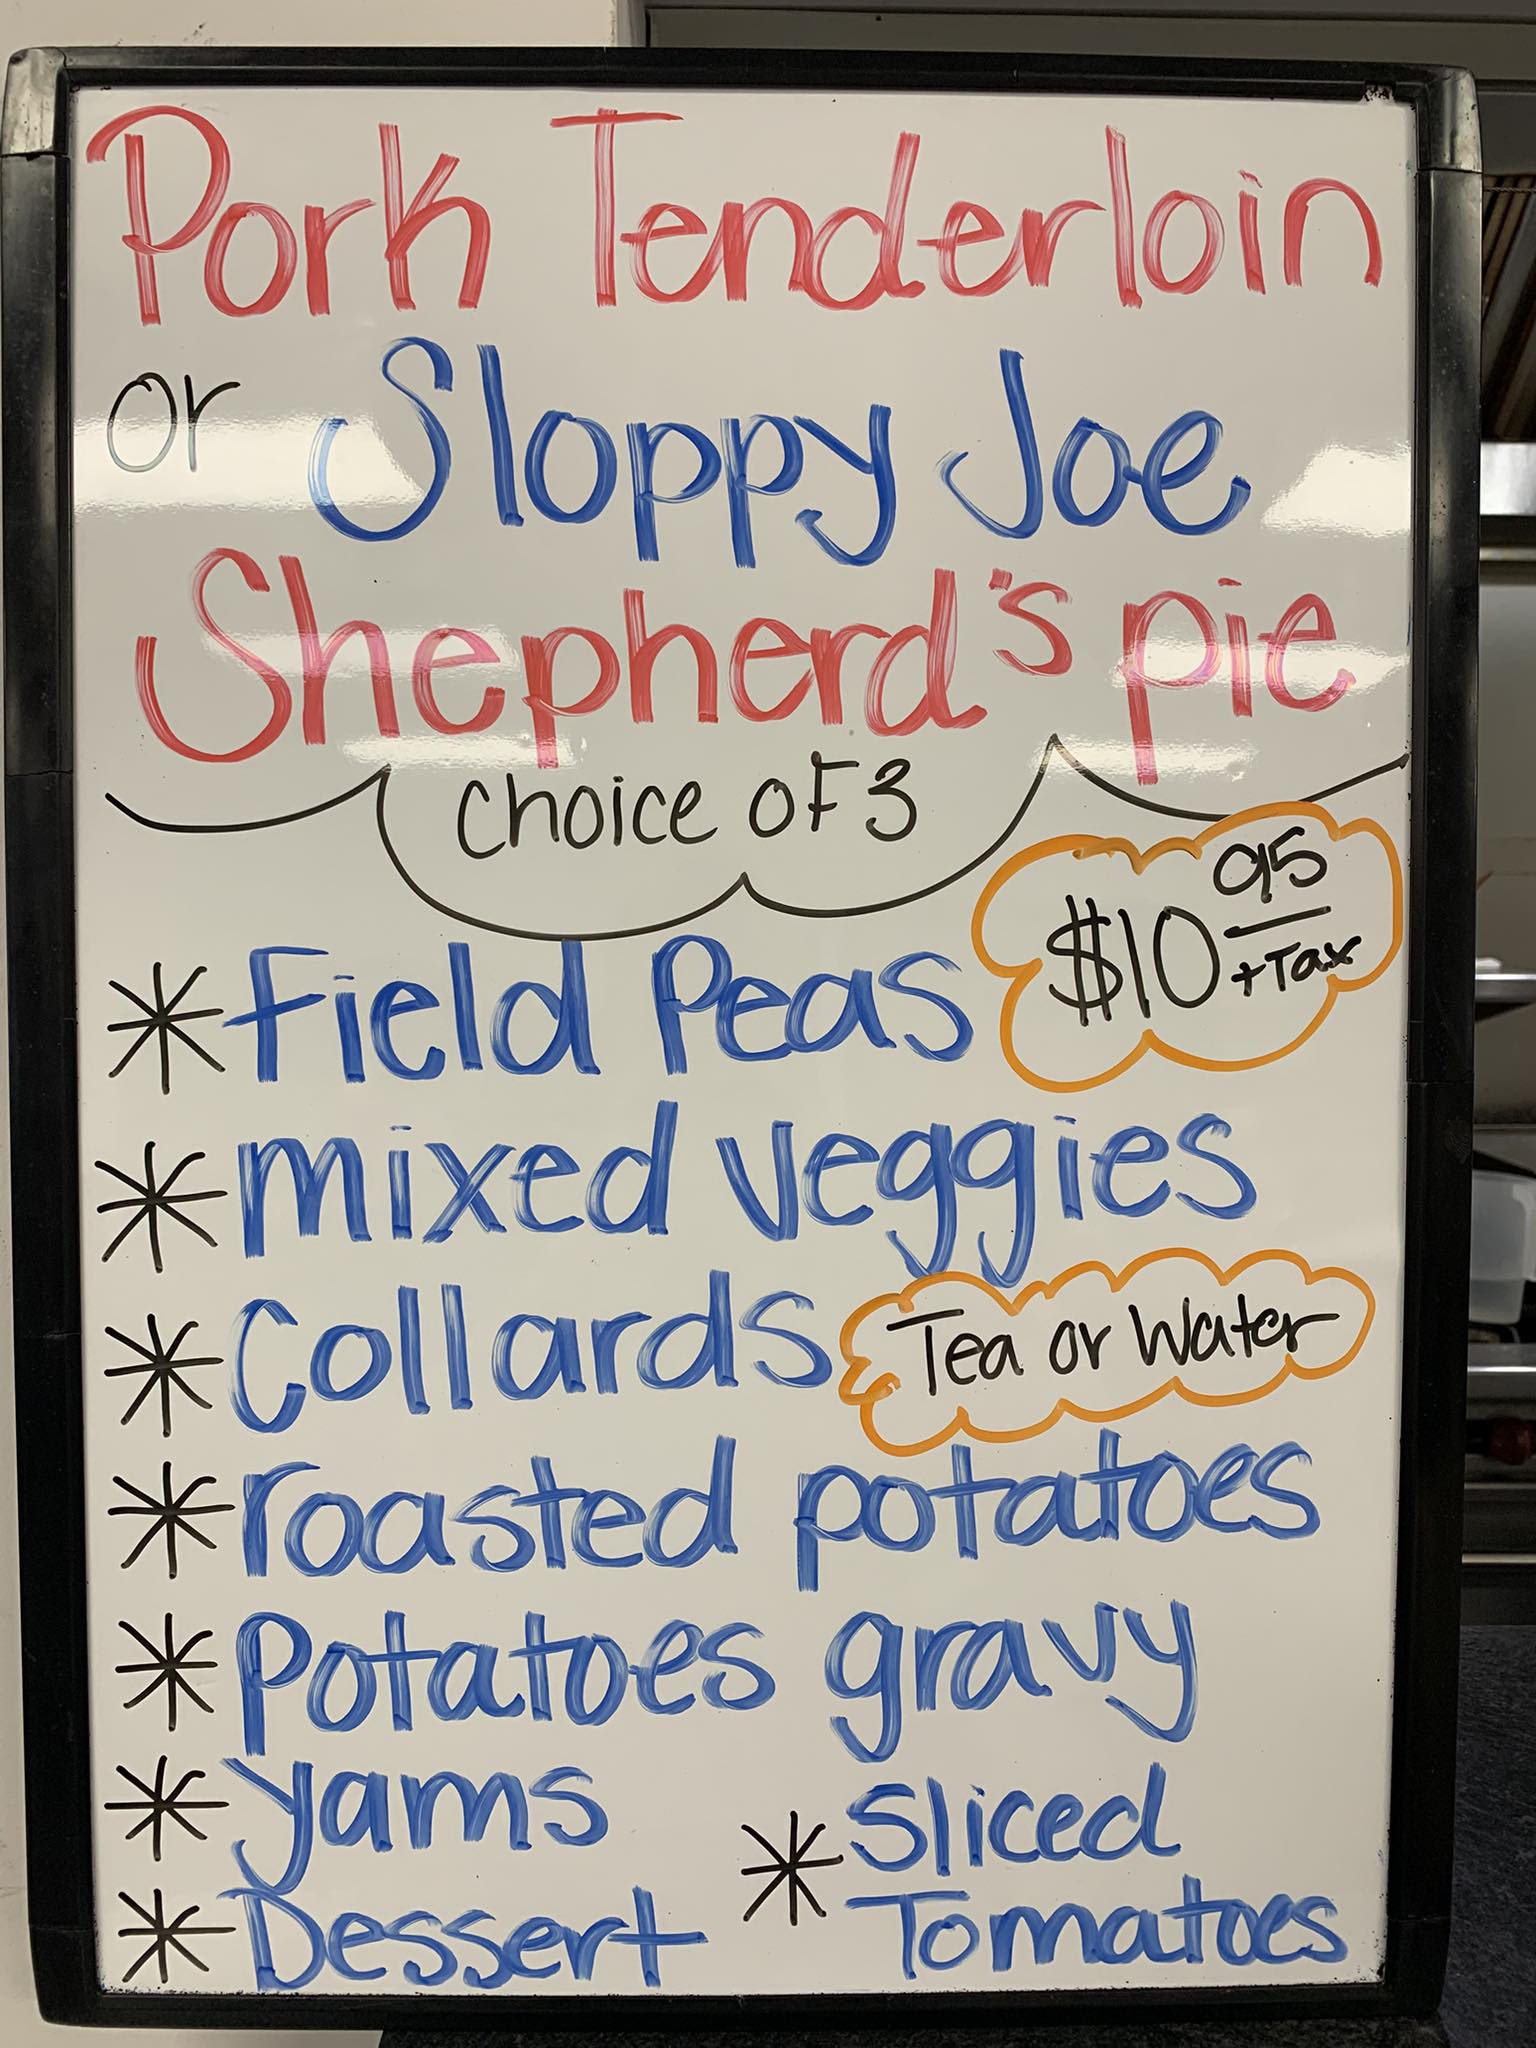 Pork Tenderloin
or Sloppy Joe
Shepherd's pie
choice of 3
$10 95
+Tax
* Field Peas
* mixed veggies
* Collards
Tea or Water
* roasted potatoes
* Potatoes gravy
* yams
* Sliced
Tomatoes
* Dessert